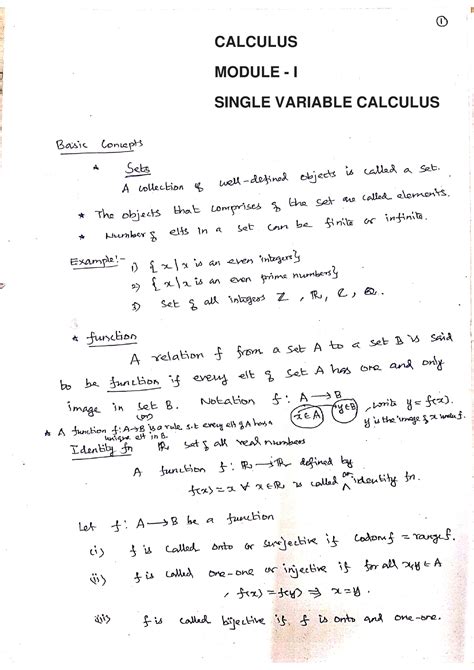 ①
CALCULUS
MODULE - I
SINGLE VARIABLE CALCULUS
Basic Concepts
* Sets
A collection of well-defined objects is called a set.
* The objects that comprises of the set are called elements.
* Number of elts in a set can be finite or infinite.
Example:- 1) {x/x is an even integers}
2) {x/x is an even prime numbers}
3) Set of all integers ℤ, ℝ, ℂ, ℚ.
* function
A relation f from a set A to a set B is said
to be function if every elt of set A has one and only
image in set B. Notation f: A → B, write y = f(x).
x∈A y∈B y is the image of x under f.
(or)
* A function f: A→B is a rule s.t every elt of A has a
unique elt in B.
Identity fn ℝ set of all real numbers
A function f: ℝ → ℝ defined by
f(x) = x ∀ x∈ℝ is called an identity fn.
Let f: A → B be a function
(i) f is called onto or surjective if codom f = range f.
(ii) f is called one-one or injective if for all x,y ∈ A
, f(x) = f(y) ⇒ x = y.
(iii) f is called bijective if f is onto and one-one.